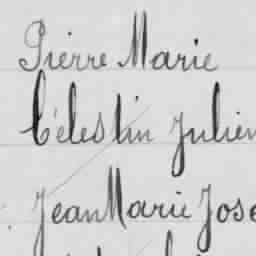 Pierre Marie
Célestin Julien
Jean Marie Jose